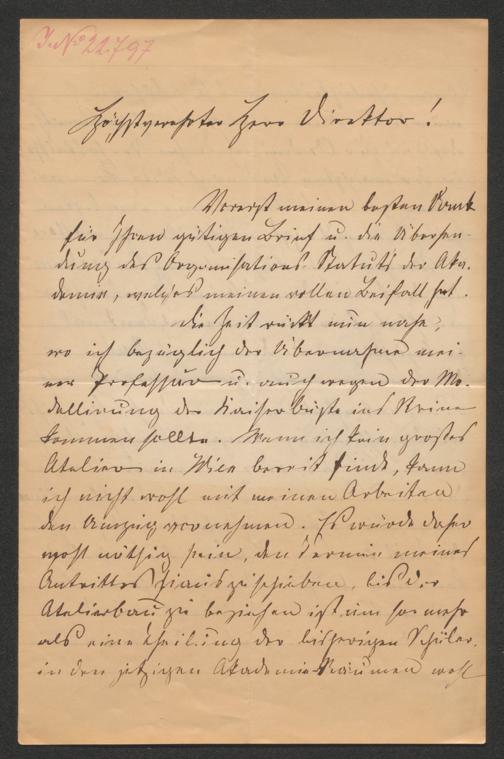 J. No 22.797
Höchstverehrter Herr Direktor!
Vorerst meinen besten Dank
für Ihren gütigen Brief u. die Übersen-
dung des Organisations-Statuts der Aka-
demie, welches meinen vollen Beifall hat.
Die Zeit rückt nun nahe,
wo ich bezüglich der Übernahme mei-
ner Professur u. auch wegen der Mo-
dellirung der Kaiserbüste ins Reine
kommen sollte. Wenn ich kein großes
Atelier in Wien bereit finde, kann
ich nicht wohl mit meinen Arbeiten
den Umzug vornehmen. Es würde daher
wohl nöthig sein, den Termin meines
Antrittes hinauszuschieben, bis der
Atelierbau zu beziehen ist, um so mehr
als eine Theilung der bisherigen Schüler,
in den jetzigen Akademie-Räumen wohl